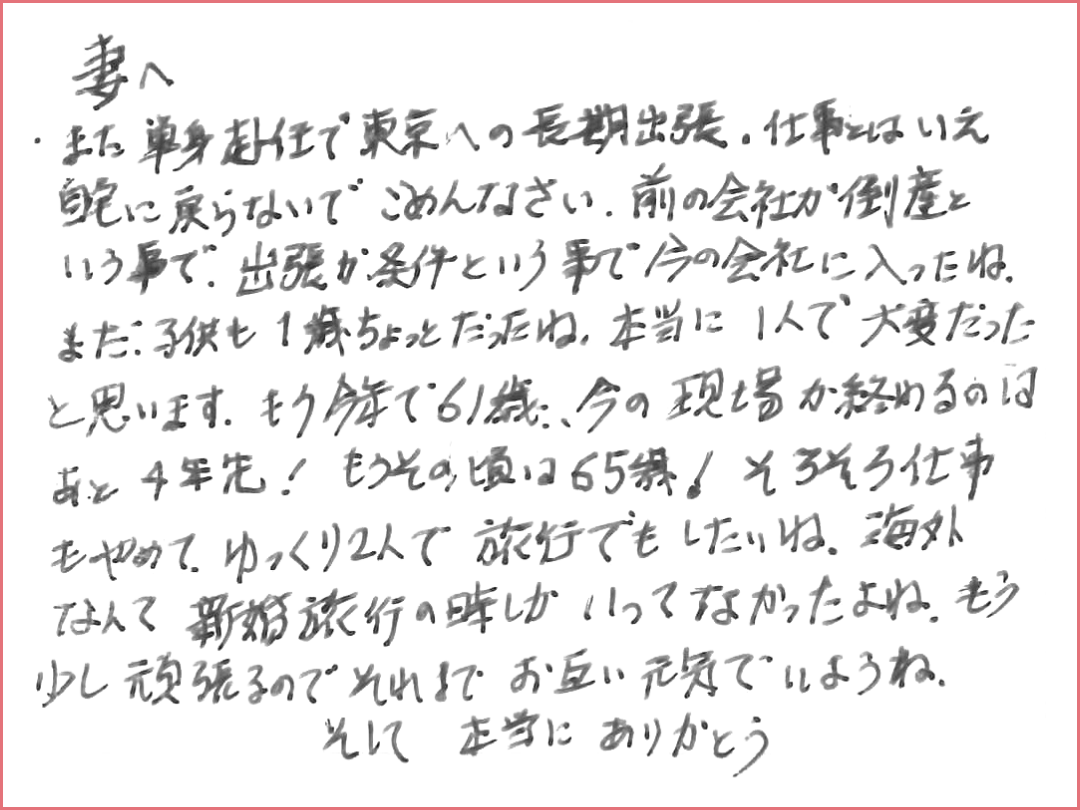 妻へ
・また単身赴任で東京への長期出張。仕事とはいえ
自宅に戻らないでごめんなさい。前の会社が倒産と
いう事で、出張が条件という事で今の会社に入ったね。
まだ子供も1歳ちょっとだったね。本当に1人で大変だった
と思います。もう今年で61歳、今の現場が終わるのは
あと4年先！もうその頃は65歳！そろそろ仕事
もやめて、ゆっくり2人で旅行でもしたいね。海外
なんて新婚旅行の時しかいってなかったよね。もう
少し頑張るのでそれまでお互い元気でいようね。
そして本当にありがとう